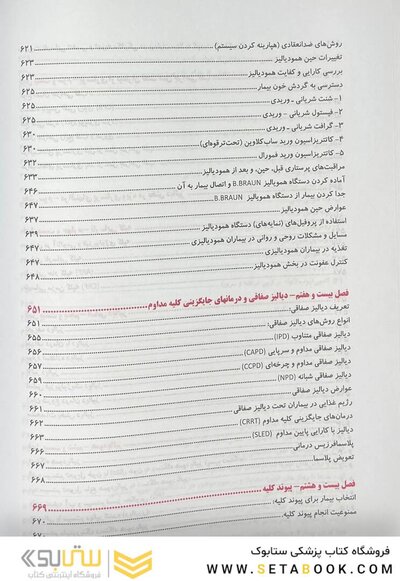 روش‌های ضدانعقادی (هپارینه کردن سیستم) ۶۲۱
تغییرات حین همودیالیز ۶۲۳
بررسی کارایی و کفایت همودیالیز ۶۲۳
دسترسی به گردش خون بیمار ۶۲۵
۱- شنت شریانی - وریدی
۲- فیستول شریانی - وریدی ۶۲۵
۳- گرافت شریانی - وریدی ۶۳۰
۴- کاتتریزاسیون ورید ساب‌کلاوین (تحت‌ترقوه‌ای) ۶۳۰
۵- کاتتریزاسیون ورید فمورال ۶۳۲
مراقبت‌های پرستاری قبل، حین، و بعد از همودیالیز ۶۳۳
آماده کردن دستگاه همودیالیز B.BRAUN و اتصال بیمار به آن ۶۴۶
جدا کردن بیمار از دستگاه همودیالیز B.BRAUN ۶۴۷
عوارض حین همودیالیز ۶۳۷
استفاده از پروفیل‌های (نمایه‌های) دستگاه همودیالیز ۶۳۹
مسایل و مشکلات روحی و روانی در بیماران همودیالیزی ۶۴۷
تغذیه در بیماران همودیالیزی ۶۴۷
کنترل عفونت در بخش همودیالیز ۶۴۸
فصل بیست و هفتم- دیالیز صفاقی و درمانهای جایگزینی کلیه مداوم ۶۵۱
تعریف دیالیز صفاقی:
انواع روش‌های دیالیز صفاقی: ۶۵۱
دیالیز صفاقی متناوب (IPD) ۶۵۵
دیالیز صفاقی مداوم و سرپایی (CAPD) ۶۵۶
دیالیز صفاقی مداوم و چرخه‌ای (CCPD) ۶۵۷
دیالیز صفاقی شبانه (NPD) ۶۵۹
عوارض دیالیز صفاقی ۶۶۰
رژیم غذایی در بیماران تحت دیالیز صفاقی ۶۶۱
درمان‌های جایگزینی کلیه مداوم (CRRT) ۶۶۲
دیالیز با کارایی پایین مداوم (SLED) ۶۶۳
پلاسمافرزیس درمانی ۶۶۷
تعویض پلاسما ۶۶۸
فصل بیست و هشتم- پیوند کلیه ۶۶۹
انتخاب بیمار برای پیوند کلیه
ممنوعیت انجام پیوند کلیه ۶۷۰
فروشگاه کتاب پزشکی ستابوک
WWW.SETABOOK.COM
ستابوک
فروشگاه اینترنتی کتاب